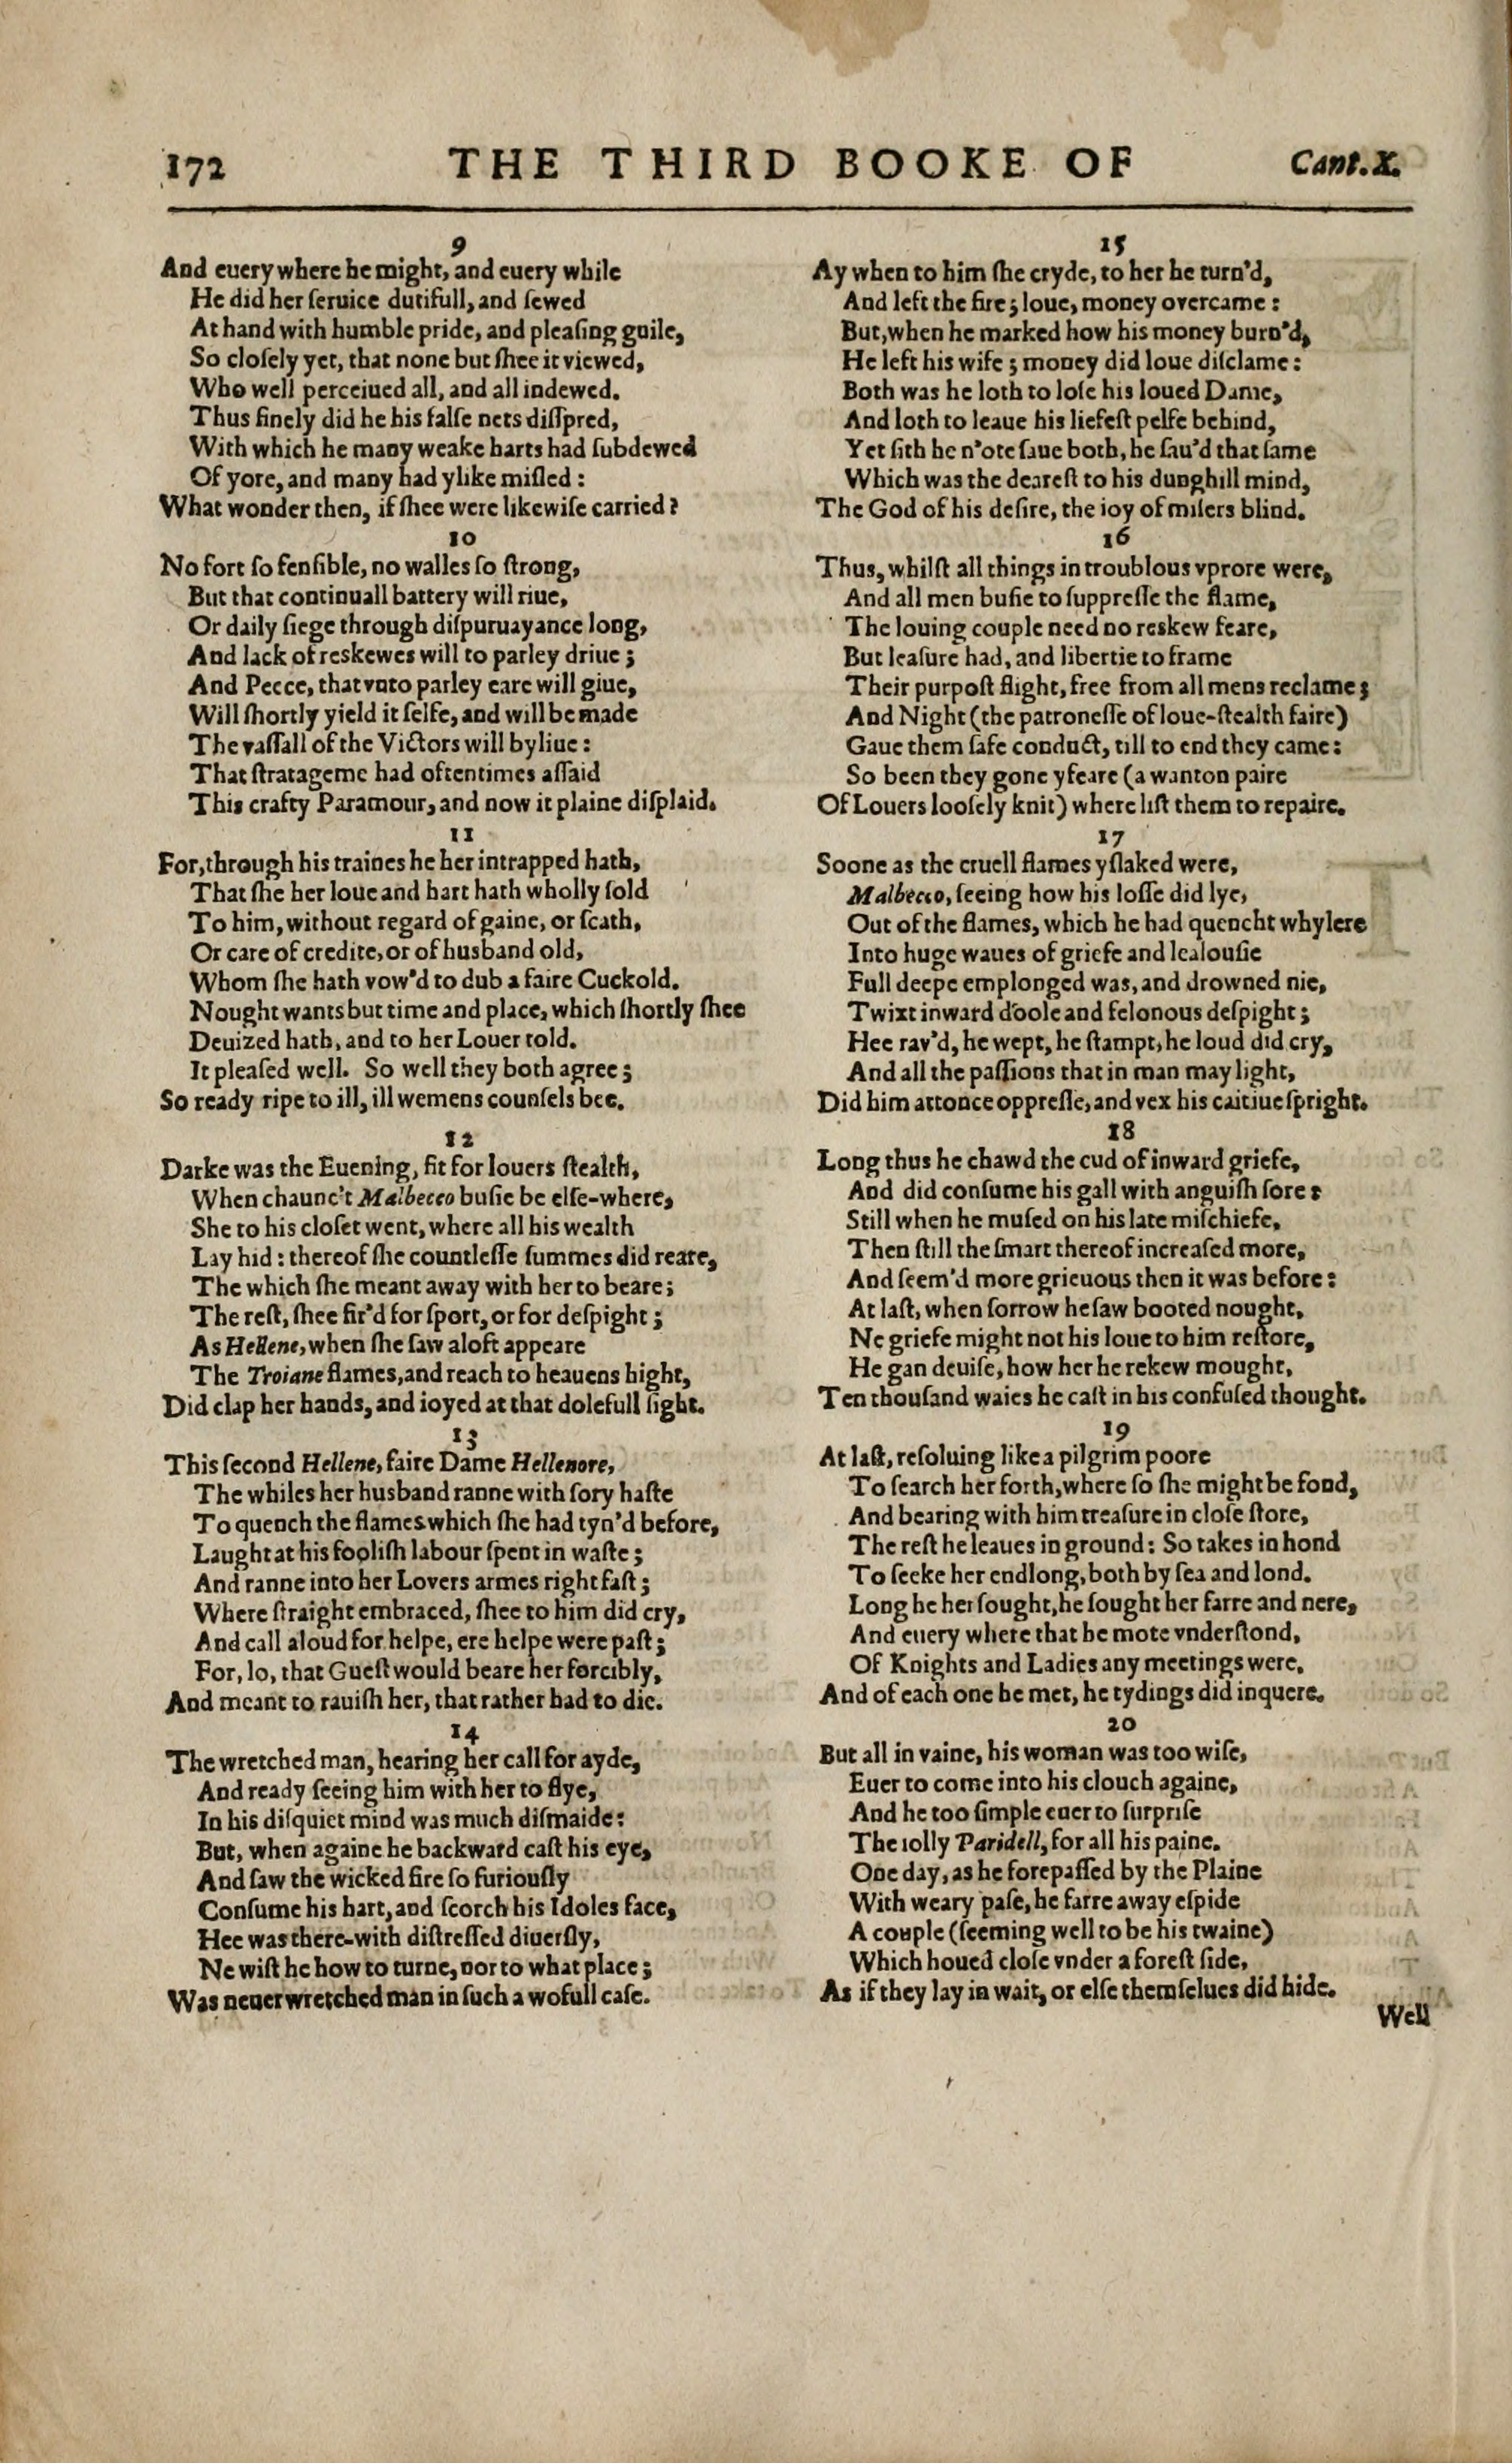 172 THE THIRD BOOKE OF Cant. X.
9
And euery where he might, and euery while
He did her ſeruice dutifull, and ſewed
At hand with humble pride, and pleaſing guile,
So cloſely yet, that none but ſhee it viewed,
Who well perceiued all, and all indewed.
Thus finely did he his falſe nets diſſpred,
With which he many weake harts had ſubdewed
Of yore, and many had ylike miſled:
What wonder then, if ſhee were likewiſe carried?
10
No fort ſo fenſible, no walles ſo ſtrong,
But that continuall battery will riue,
Or daily ſiege through diſpuruayance long,
And lack of reskewes will to parley driue;
And Peece, that vnto parley eare will giue,
Will ſhortly yield it ſelfe, and will be made
The vaſſall of the Victors will byliue:
That ſtratageme had oftentimes aſſaid
This crafty Paramour, and now it plaine diſplaid.
11
For, through his traines he her intrapped hath,
That ſhe her loue and hart hath wholly ſold
To him, without regard of gaine, or ſcath,
Or care of credite, or of husband old,
Whom ſhe hath vow'd to dub a faire Cuckold.
Nought wants but time and place, which ſhortly ſhee
Deuized hath, and to her Louer told.
It pleaſed well. So well they both agree;
So ready ripe to ill, ill wemens counſels bee.
12
Darke was the Euening, fit for louers ſtealth,
When chaunc't Malbecco buſie be elſe-where,
She to his cloſet went, where all his wealth
Lay hid: thereof ſhe countleſſe ſummes did reare,
The which ſhe meant away with her to beare;
The reſt, ſhee fir'd for ſport, or for deſpight;
As Hellene, when ſhe ſaw aloft appeare
The Troiane flames, and reach to heauens hight,
Did clap her hands, and ioyed at that dolefull ſight.
13
This ſecond Hellene, faire Dame Hellenore,
The whiles her husband ranne with ſory haſte
To quench the flames which ſhe had tyn'd before,
Laught at his fooliſh labour ſpent in waſte;
And ranne into her Lovers armes right faſt;
Where ſtraight embraced, ſhee to him did cry,
And call aloud for helpe, ere helpe were paſt;
For, lo, that Gueſt would beare her forcibly,
And meant to rauiſh her, that rather had to die.
14
The wretched man, hearing her call for ayde,
And ready ſeeing him with her to flye,
In his diſquiet mind was much diſmaide:
But, when againe he backward caſt his eye,
And ſaw the wicked fire ſo furiouſly
Conſume his hart, and ſcorch his Idoles face,
Hee was there-with diſtreſſed diuerſly,
Ne wiſt he how to turne, nor to what place;
Was neuer wretched man in ſuch a wofull caſe.
15
Ay when to him ſhe cryde, to her he turn'd,
And left the fire; loue, money overcame:
But, when he marked how his money burn'd,
He left his wife; money did loue diſclame:
Both was he loth to loſe his loued Dame,
And loth to leaue his liefeſt pelfe behind,
Yet ſith he n'ote ſaue both, he ſau'd that ſame
Which was the deareſt to his dunghill mind,
The God of his deſire, the ioy of miſers blind.
16
Thus, whilſt all things in troublous vprore were,
And all men buſie to ſuppreſſe the flame,
The louing couple need no reskew feare,
But leaſure had, and libertie to frame
Their purpoſt flight, free from all mens reclame;
And Night (the patroneſſe of loue-ſtealth faire)
Gaue them ſafe conduct, till to end they came:
So been they gone yfeare (a wanton paire
Of Louers looſely knit) where liſt them to repaire.
17
Soone as the cruell flames yſlaked were,
Malbecco, ſeeing how his loſſe did lye,
Out of the flames, which he had quencht whylere
Into huge waues of griefe and Iealouſie
Full deepe emplonged was, and drowned nie,
Twixt inward doole and felonous deſpight;
Hee rav'd, he wept, he ſtampt, he loud did cry,
And all the paſſions that in man may light,
Did him attonce oppreſſe, and vex his caitiue ſpright.
18
Long thus he chawd the cud of inward griefe,
And did conſume his gall with anguiſh ſore:
Still when he muſed on his late miſchiefe,
Then ſtill the ſmart thereof increaſed more,
And ſeem'd more grieuous then it was before:
At laſt, when ſorrow he ſaw booted nought,
Ne griefe might not his loue to him reſtore,
He gan deuiſe, how her he rekew mought,
Ten thouſand waies he caſt in his confuſed thought.
19
At laſt, reſoluing like a pilgrim poore
To ſearch her forth, where ſo ſhe might be fond,
And bearing with him treaſure in cloſe ſtore,
The reſt he leaues in ground: So takes in hond
To ſeeke her endlong, both by ſea and lond.
Long he her ſought, he ſought her farre and nere,
And euery where that he mote vnderſtond,
Of Knights and Ladies any meetings were,
And of each one he met, he tydings did inquere.
20
But all in vaine, his woman was too wiſe,
Euer to come into his clouch againe,
And he too ſimple euer to ſurpriſe
The iolly Paridell, for all his paine.
One day, as he forepaſſed by the Plaine
With weary paſe, he farre away eſpide
A couple (ſeeming well to be his twaine)
Which houed cloſe vnder a foreſt ſide,
As if they lay in wait, or elſe themſelues did hide.
Well